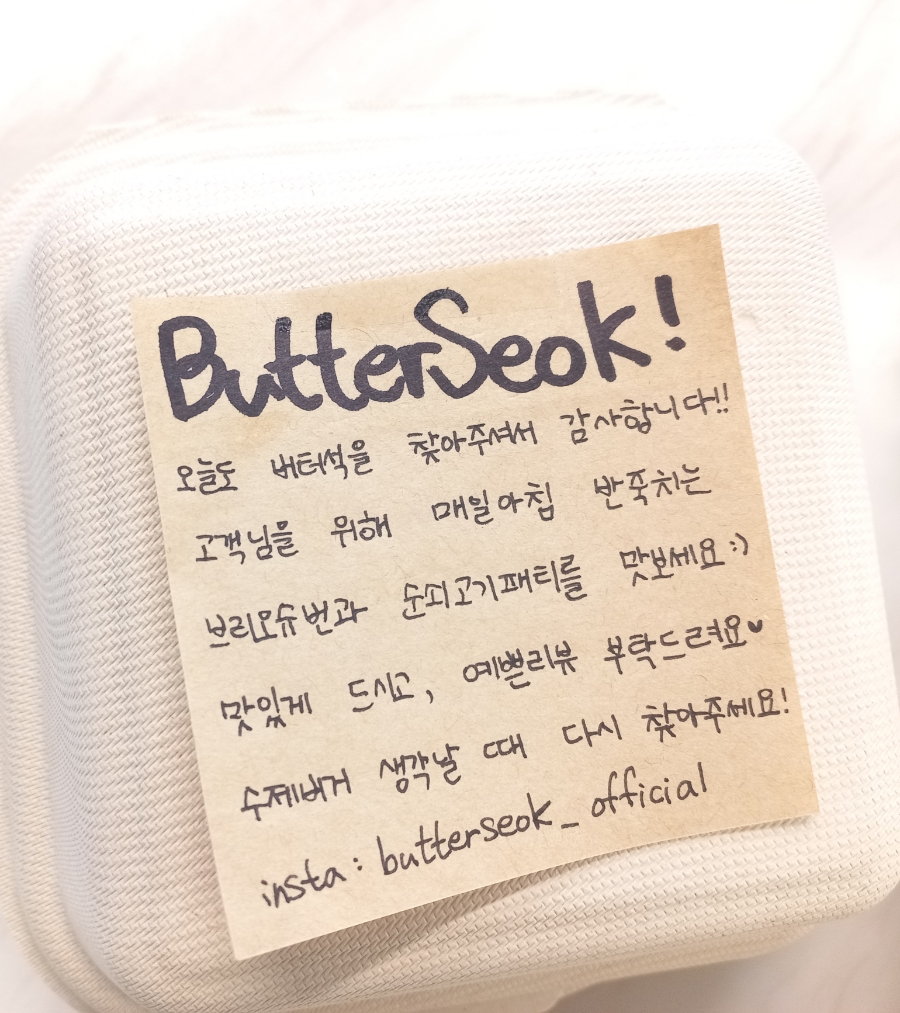 ButterSeok!
오늘도 버터석을 찾아주셔서 감사합니다!!
고객님을 위해 매일아침 반죽치는
브리오슈번과 순쇠고기패티를 맛보세요:)
맛있게 드시고, 예쁜리뷰 부탁드려요♥
수제버거 생각날 때 다시 찾아주세요!
insta: butterseok_official